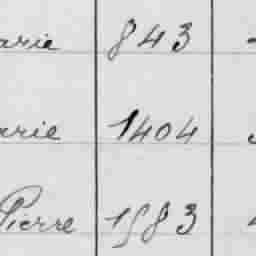 arie 843
arie 1404
Pierre 1583